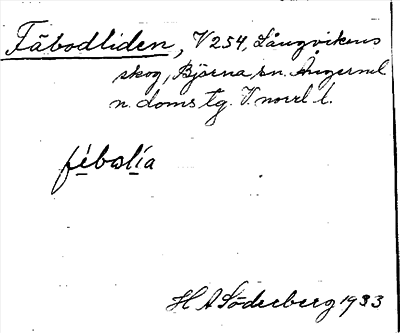 Fäbodliden, V254, Långvikens
skog, Björna sn. Ångerml
n. doms tg. V. norrl l.
fèbɷlía
H A Söderberg 1933